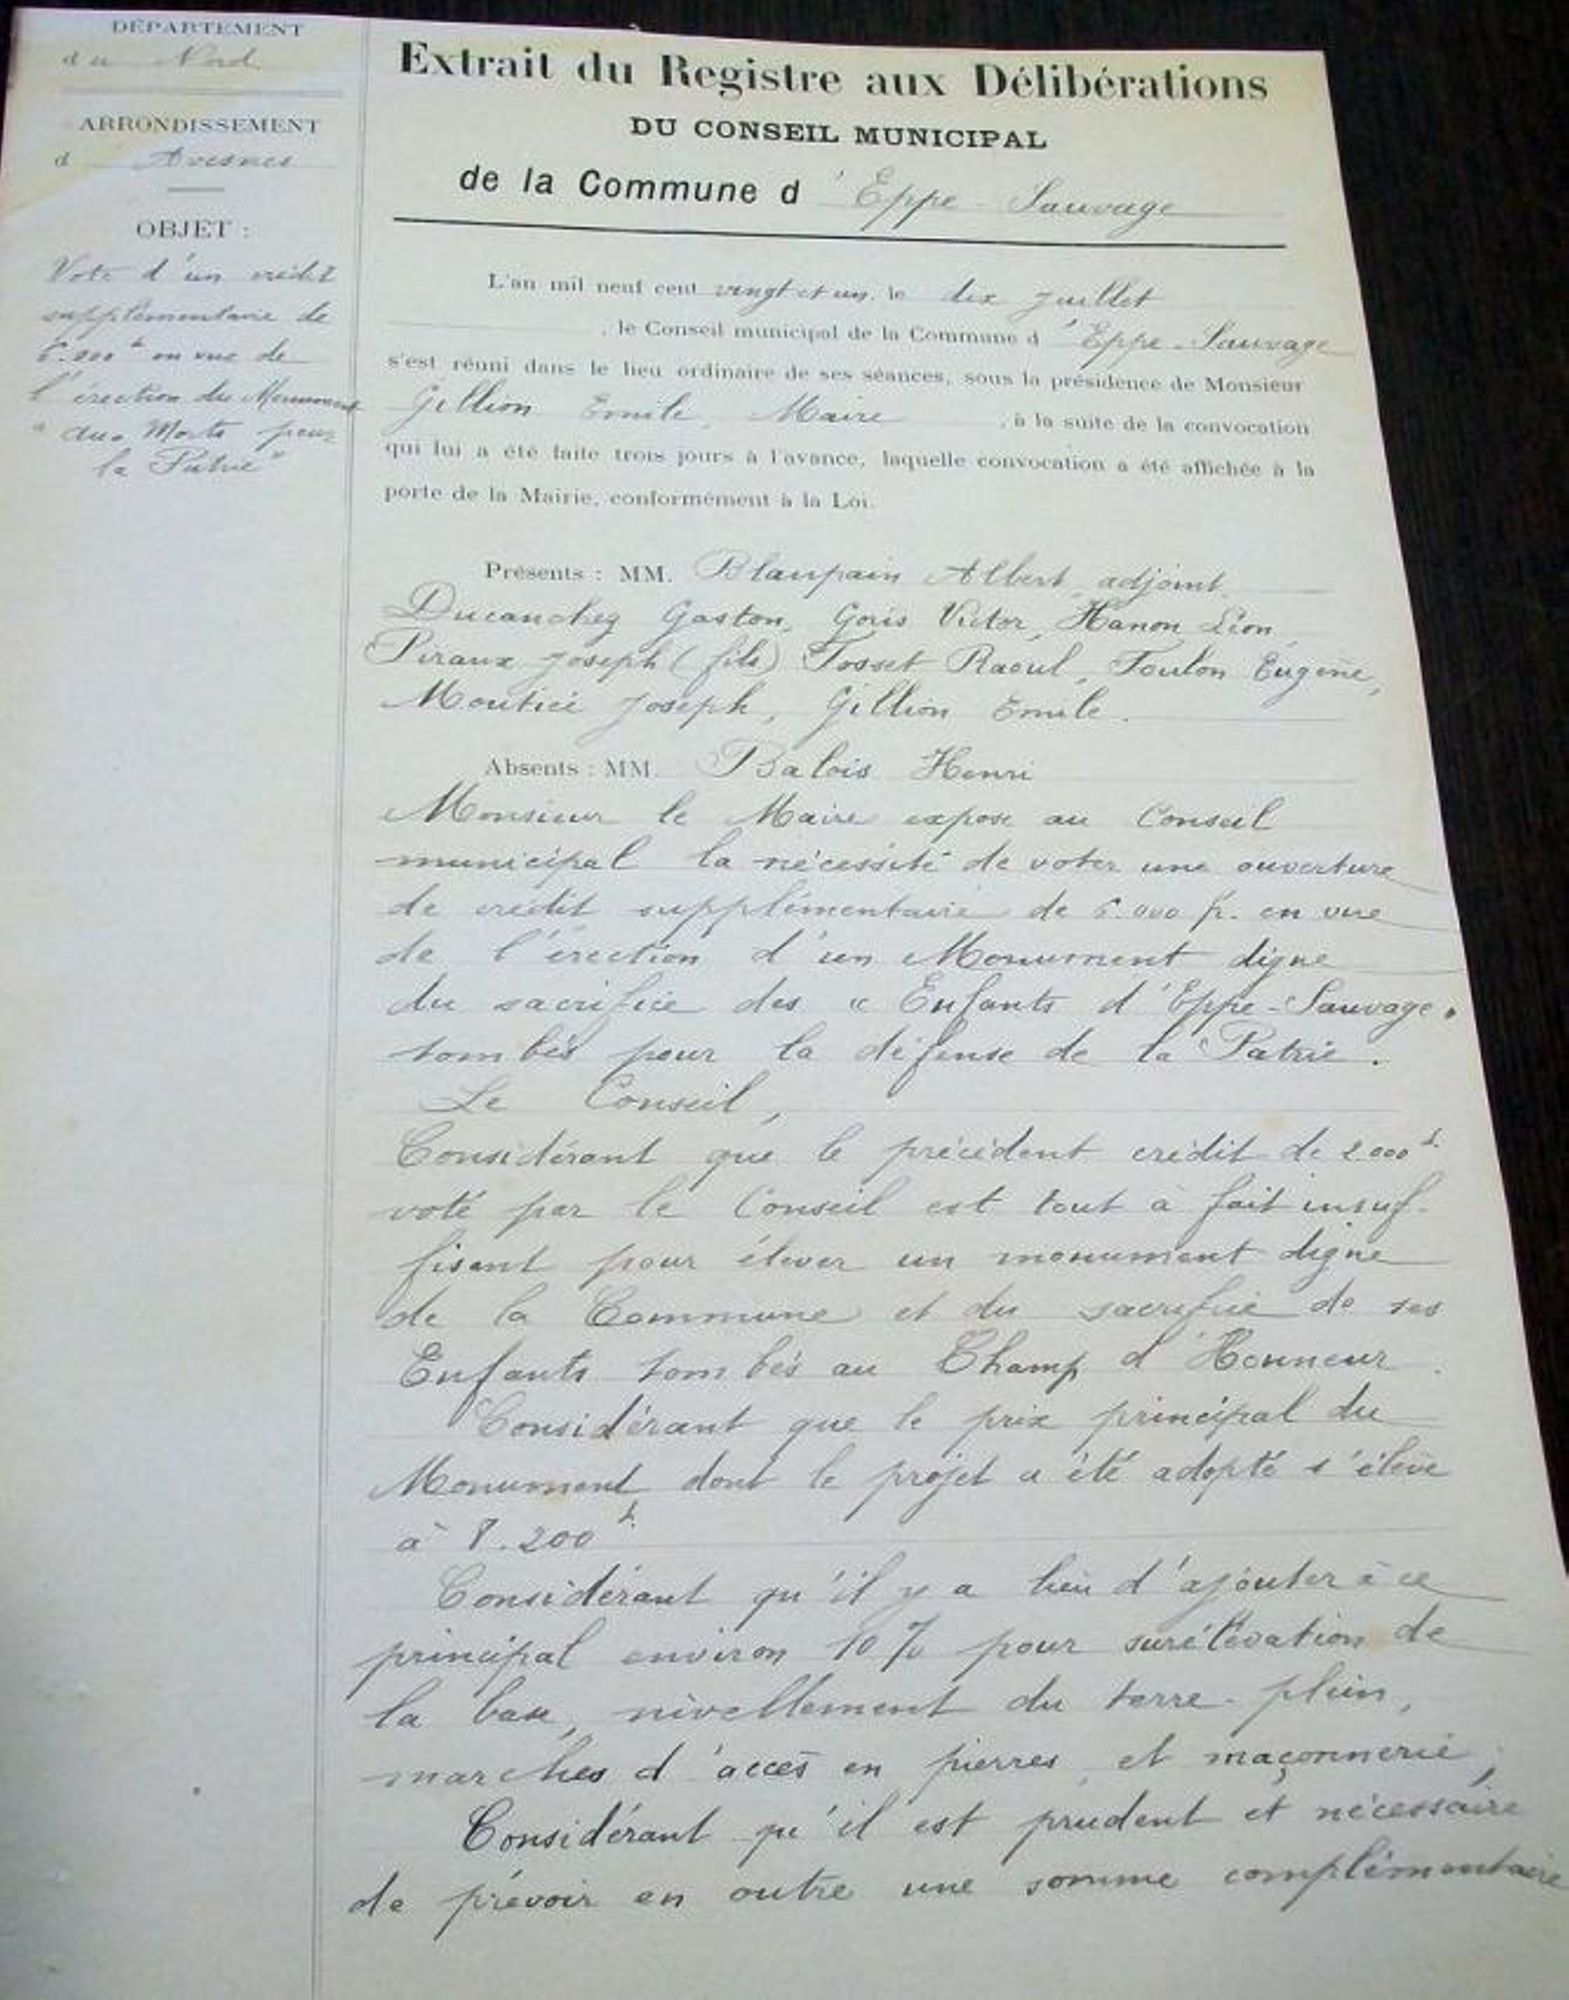 DÉPARTEMENT
du Nord
ARRONDISSEMENT
d Avesnes
OBJET :
Vote d'un crédit
supplémentaire de
6.000 f en vue de
l'érection du Monument
"aux Morts pour
la Patrie"
Extrait du Registre aux Délibérations
DU CONSEIL MUNICIPAL
de la Commune d'Eppe-Sauvage
L'an mil neuf cent vingt et un, le dix juillet
, le Conseil municipal de la Commune d'Eppe-Sauvage
s'est réuni dans le lieu ordinaire de ses séances, sous la présidence de Monsieur
Gillion Emile, Maire , à la suite de la convocation
qui lui a été faite trois jours à l'avance, laquelle convocation a été affichée à la
porte de la Mairie, conformément à la Loi.
Présents : MM. Blanpain Albert, adjoint,
Ducanchez Gaston, Goris Victor, Hanon Léon,
Piraux Joseph (fils) Tosset Raoul, Toulon Eugène,
Joseph, Gillion Emile.
Absents : MM. Balois Henri
Monsieur le Maire expose au Conseil
municipal la nécessité de voter une ouverture
de crédit supplémentaire de 6.000 fr. en vue
de l'érection d'un Monument digne
du sacrifice des « Enfants d'Eppe-Sauvage »
tombés pour la défense de la Patrie.
Le Conseil,
Considérant que le précédent crédit de 2.000 f.
voté par le Conseil est tout à fait insuf-
fisant pour élever un monument digne
de la Commune et du sacrifice de ses
Enfants tombés au Champ d'Honneur.
Considérant que le prix principal du
Monument dont le projet a été adopté s'élève
à 8.200 f.
Considérant qu'il y a lieu d'ajouter à ce
principal environ 10 % pour surélévation de
la base, nivellement du terre-plein,
marches d'accès en pierres, et maçonnerie,
Considérant qu'il est prudent et nécessaire
de prévoir en outre une somme complémentaire